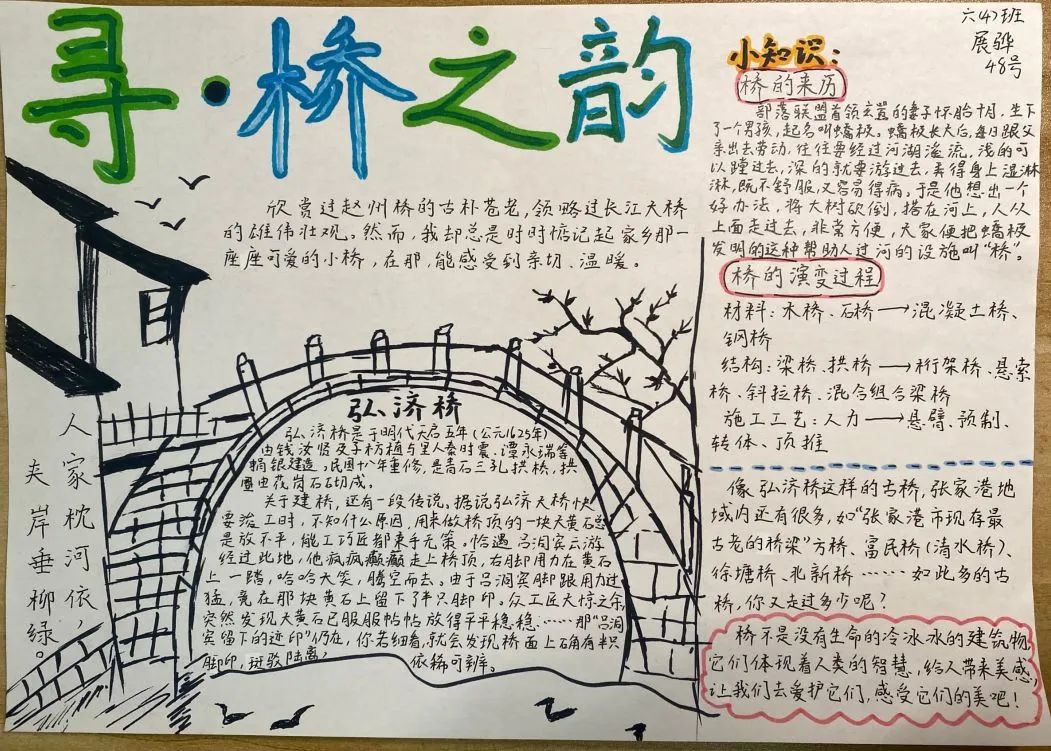 寻·桥之韵
六(4)班
展骅
48号
欣赏过赵州桥的古朴苍老,领略过长江大桥
的雄伟壮观。然而,我却总是时时惦记起家乡那一
座座可爱的小桥,在那,能感受到亲切、温暖。
人家枕河依,
夹岸垂柳绿。
弘济桥
弘济桥是于明代天启五年(公元1625年)
由钱汝贤及子枋植与里人秦时震、谭永瑞等
捐银建造。民国十八年重修,是青石三孔拱桥,拱
圈由花岗石石切成。
关于建桥,还有一段传说。据说弘济大桥快
要落工时,不知什么原因,用来做桥顶的一块大黄石总
是放不平,能工巧匠都束手无策。恰遇吕洞宾云游
经过此地,他疯疯癫癫走上桥顶,右脚用力在黄石
上一踏,哈哈大笑,腾空而去。由于吕洞宾脚跟用力过
猛,竟在那块黄石上留下了半只脚印。众工匠大惊之余,
突然发现大黄石已服服帖帖放得平平稳稳……那“吕洞
宾留下的迹印”仍在,你若细看,就会发现桥面上右角有半只
脚印,斑驳陆离,依稀可辨。
小知识:
桥的来历
部落联盟首领玄嚣的妻子怀胎十月,生下
了一个男孩,起名叫蟜极。蟜极长大后,每日跟父
亲出去劳动,往往要经过河湖溢流,浅的可
以蹚过去,深的就要游过去,弄得身上湿淋
淋,既不舒服,又容易得病。于是他想出一个
好办法,将大树砍倒,搭在河上,人从
上面走过去,非常方便,大家便把蟜极
发明的这种帮助人过河的设施叫“桥”。
桥的演变过程
材料:木桥、石桥→混凝土桥、
钢桥
结构:梁桥、拱桥→桁架桥、悬索
桥、斜拉桥、混合组合梁桥
施工工艺:人力→悬臂、预制、
转体、顶推
像弘济桥这样的古桥,张家港地
域内还有很多,如“张家港市现存最
古老的桥梁”方桥、富民桥(清水桥)、
徐塘桥、兆新桥……如此多的古
桥,你又走过多少呢?
桥不是没有生命的冷冰冰的建筑物,
它们体现着人类的智慧,给人带来美感,
让我们去爱护它们,感受它们的美吧!